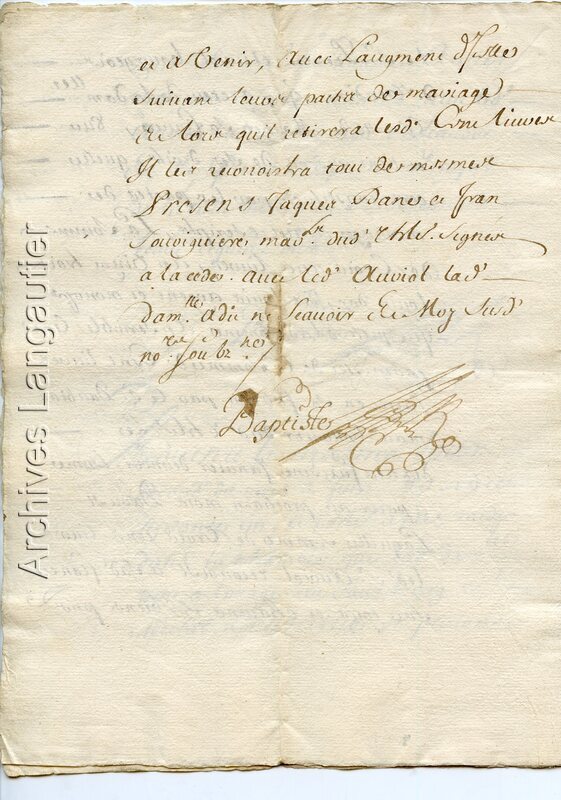 et a Venir, avec Laugment d'Icelles
Suivant leurs pactes de mariage
Et Lors quil retirera lesd.
Il les reconoistra tout de mesmes
Presens Jaques Danis et Fran
mad. dud. Signes
a la cede. avec led. Auriol lad.
dam.lle a dit ne scavoir Et Moy susd.
no.re soubz.né
Baptiste
Archives Langautier